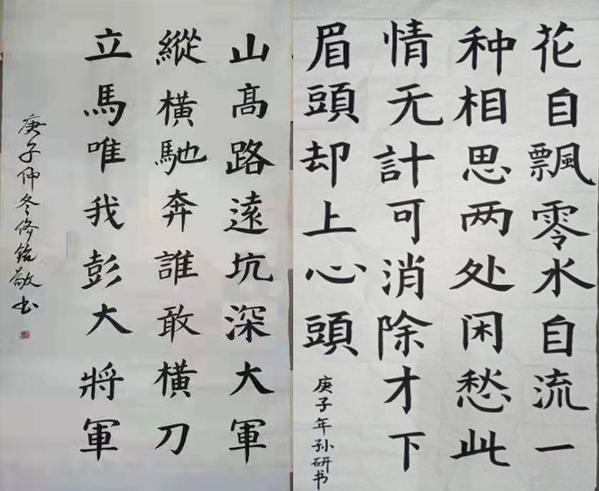 山髙路遠坑深大軍
縱橫馳奔誰敢橫刀
立馬唯我彭大將軍
庚子仲冬修銘敬书
花自飄零水自流一
种相思两处闲愁此
情无計可消除才下
眉頭却上心頭
庚子年孙研书